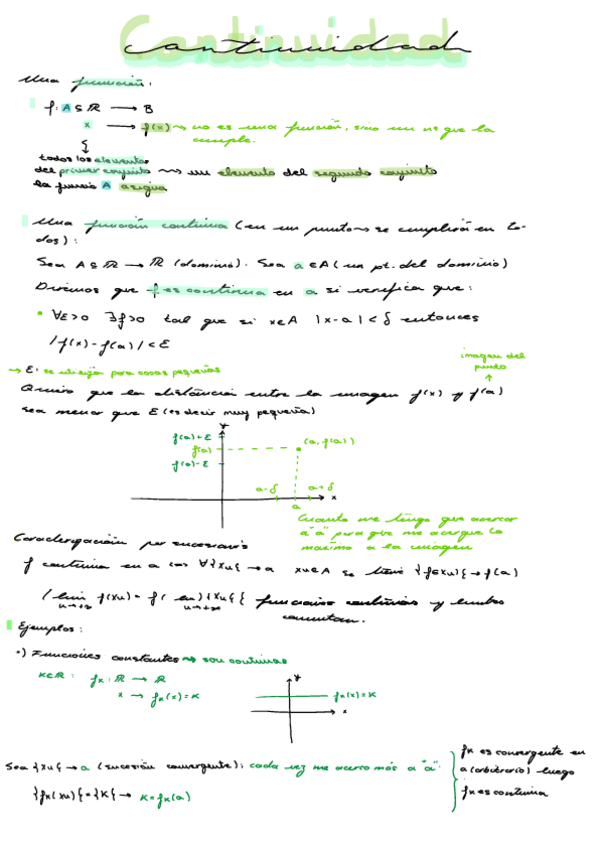 Continuidad
Una función:
f: A ⊆ ℝ → B
x → f(x) ⇝ no es una función, sino un nº que la
cumple.
todos los elementos
del primer conjunto ⇝ un elemento del segundo conjunto
la función A asigna
Una función continua (en un punto → se cumplirá en to-
dos):
Sea A ⊆ ℝ → ℝ (dominio). Sea a ∈ A (un pt. del dominio)
Diremos que f es continua en a si verifica que:
• ∀ε>0 ∃δ>0 tal que si x∈A |x-a| < δ entonces
|f(x) - f(a)| < ε
→ ε: se utiliza para cosas pequeñas
imagen del
punto
Quiero que la distancia entre la imagen f(x) y f(a)
sea menor que ε (es decir muy pequeña)
y
f(a)+ε
f(a)
f(a)-ε
(a, f(a))
a-δ
a+δ
x
a
Cuanto me tengo que acercar
a "a" para que me acerque lo
máximo a la imagen
Caracterización por sucesiones
f continua en a ⇔ ∀{xn} → a xn∈A se tiene {f(xn)} → f(a)
(lim f(xn) = f( lim ){xn}{ funciones continuas y límites
n→+∞ n→+∞ conmutan.
Ejemplos:
•) Funciones constantes ⇝ son continuas
K∈ℝ: fK: ℝ → ℝ
x → fK(x) = K
y
fK(x)=K
x
Sea {xn} → a (sucesión convergente); cada vez me acerco más a "a".
{fK(xn)} = {K} → K = fK(a)
fK es convergente en
a (arbitrario) luego
fK es continua